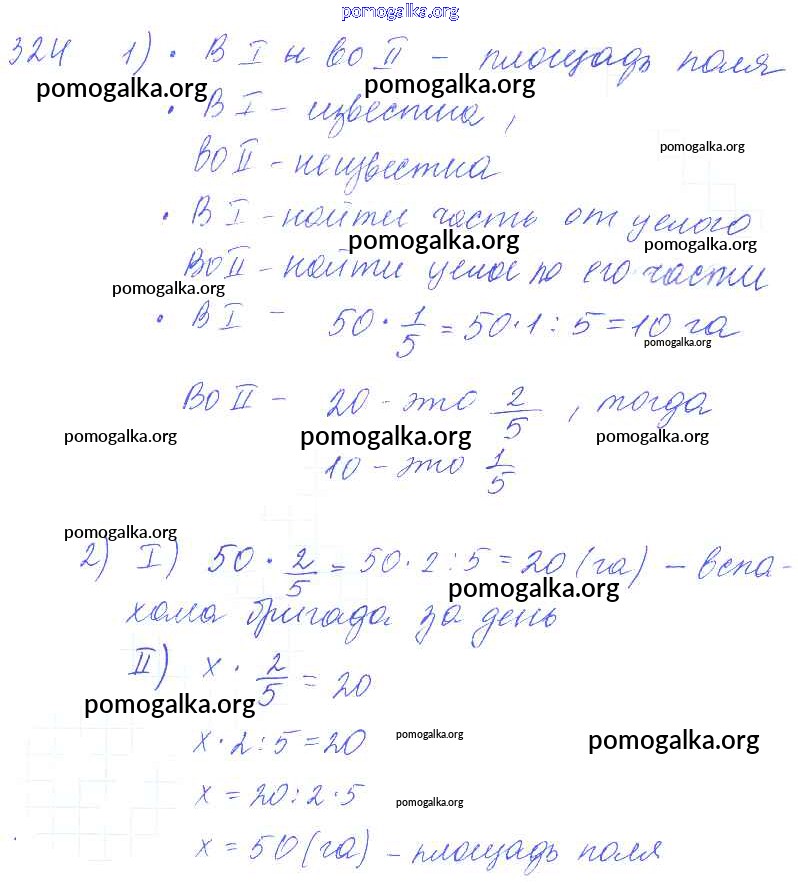 pomogalka.org
324 1) • В I и во II – площадь поля
pomogalka.org pomogalka.org
• В I – известна,
pomogalka.org
во II – неизвестна
• В I – найти часть от целого
pomogalka.org pomogalka.org
Во II – найти целое по его части
pomogalka.org
• В I – 50 · 1/5 = 50 · 1 : 5 = 10 га
pomogalka.org
Во II – 20 – это 2/5, тогда
pomogalka.org pomogalka.org pomogalka.org
10 – это 1/5
pomogalka.org
2) I) 50 · 2/5 = 50 · 2 : 5 = 20 (га) – вспа-
pomogalka.org
хала бригада за день
II) х · 2/5 = 20
pomogalka.org
х · 2 : 5 = 20
pomogalka.org pomogalka.org
х = 20 : 2 · 5
pomogalka.org
х = 50 (га) – площадь поля